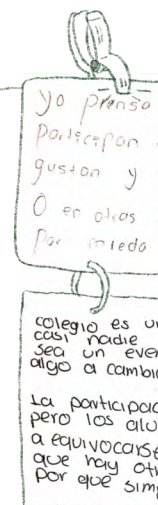 Yo pienso
participan
gustan y
O en otras
Por miedo
colegio es un
casi nadie
sea un even
algo a cambio
La participac
pero los alu
a equivocarse
que hay otr
Por que sim